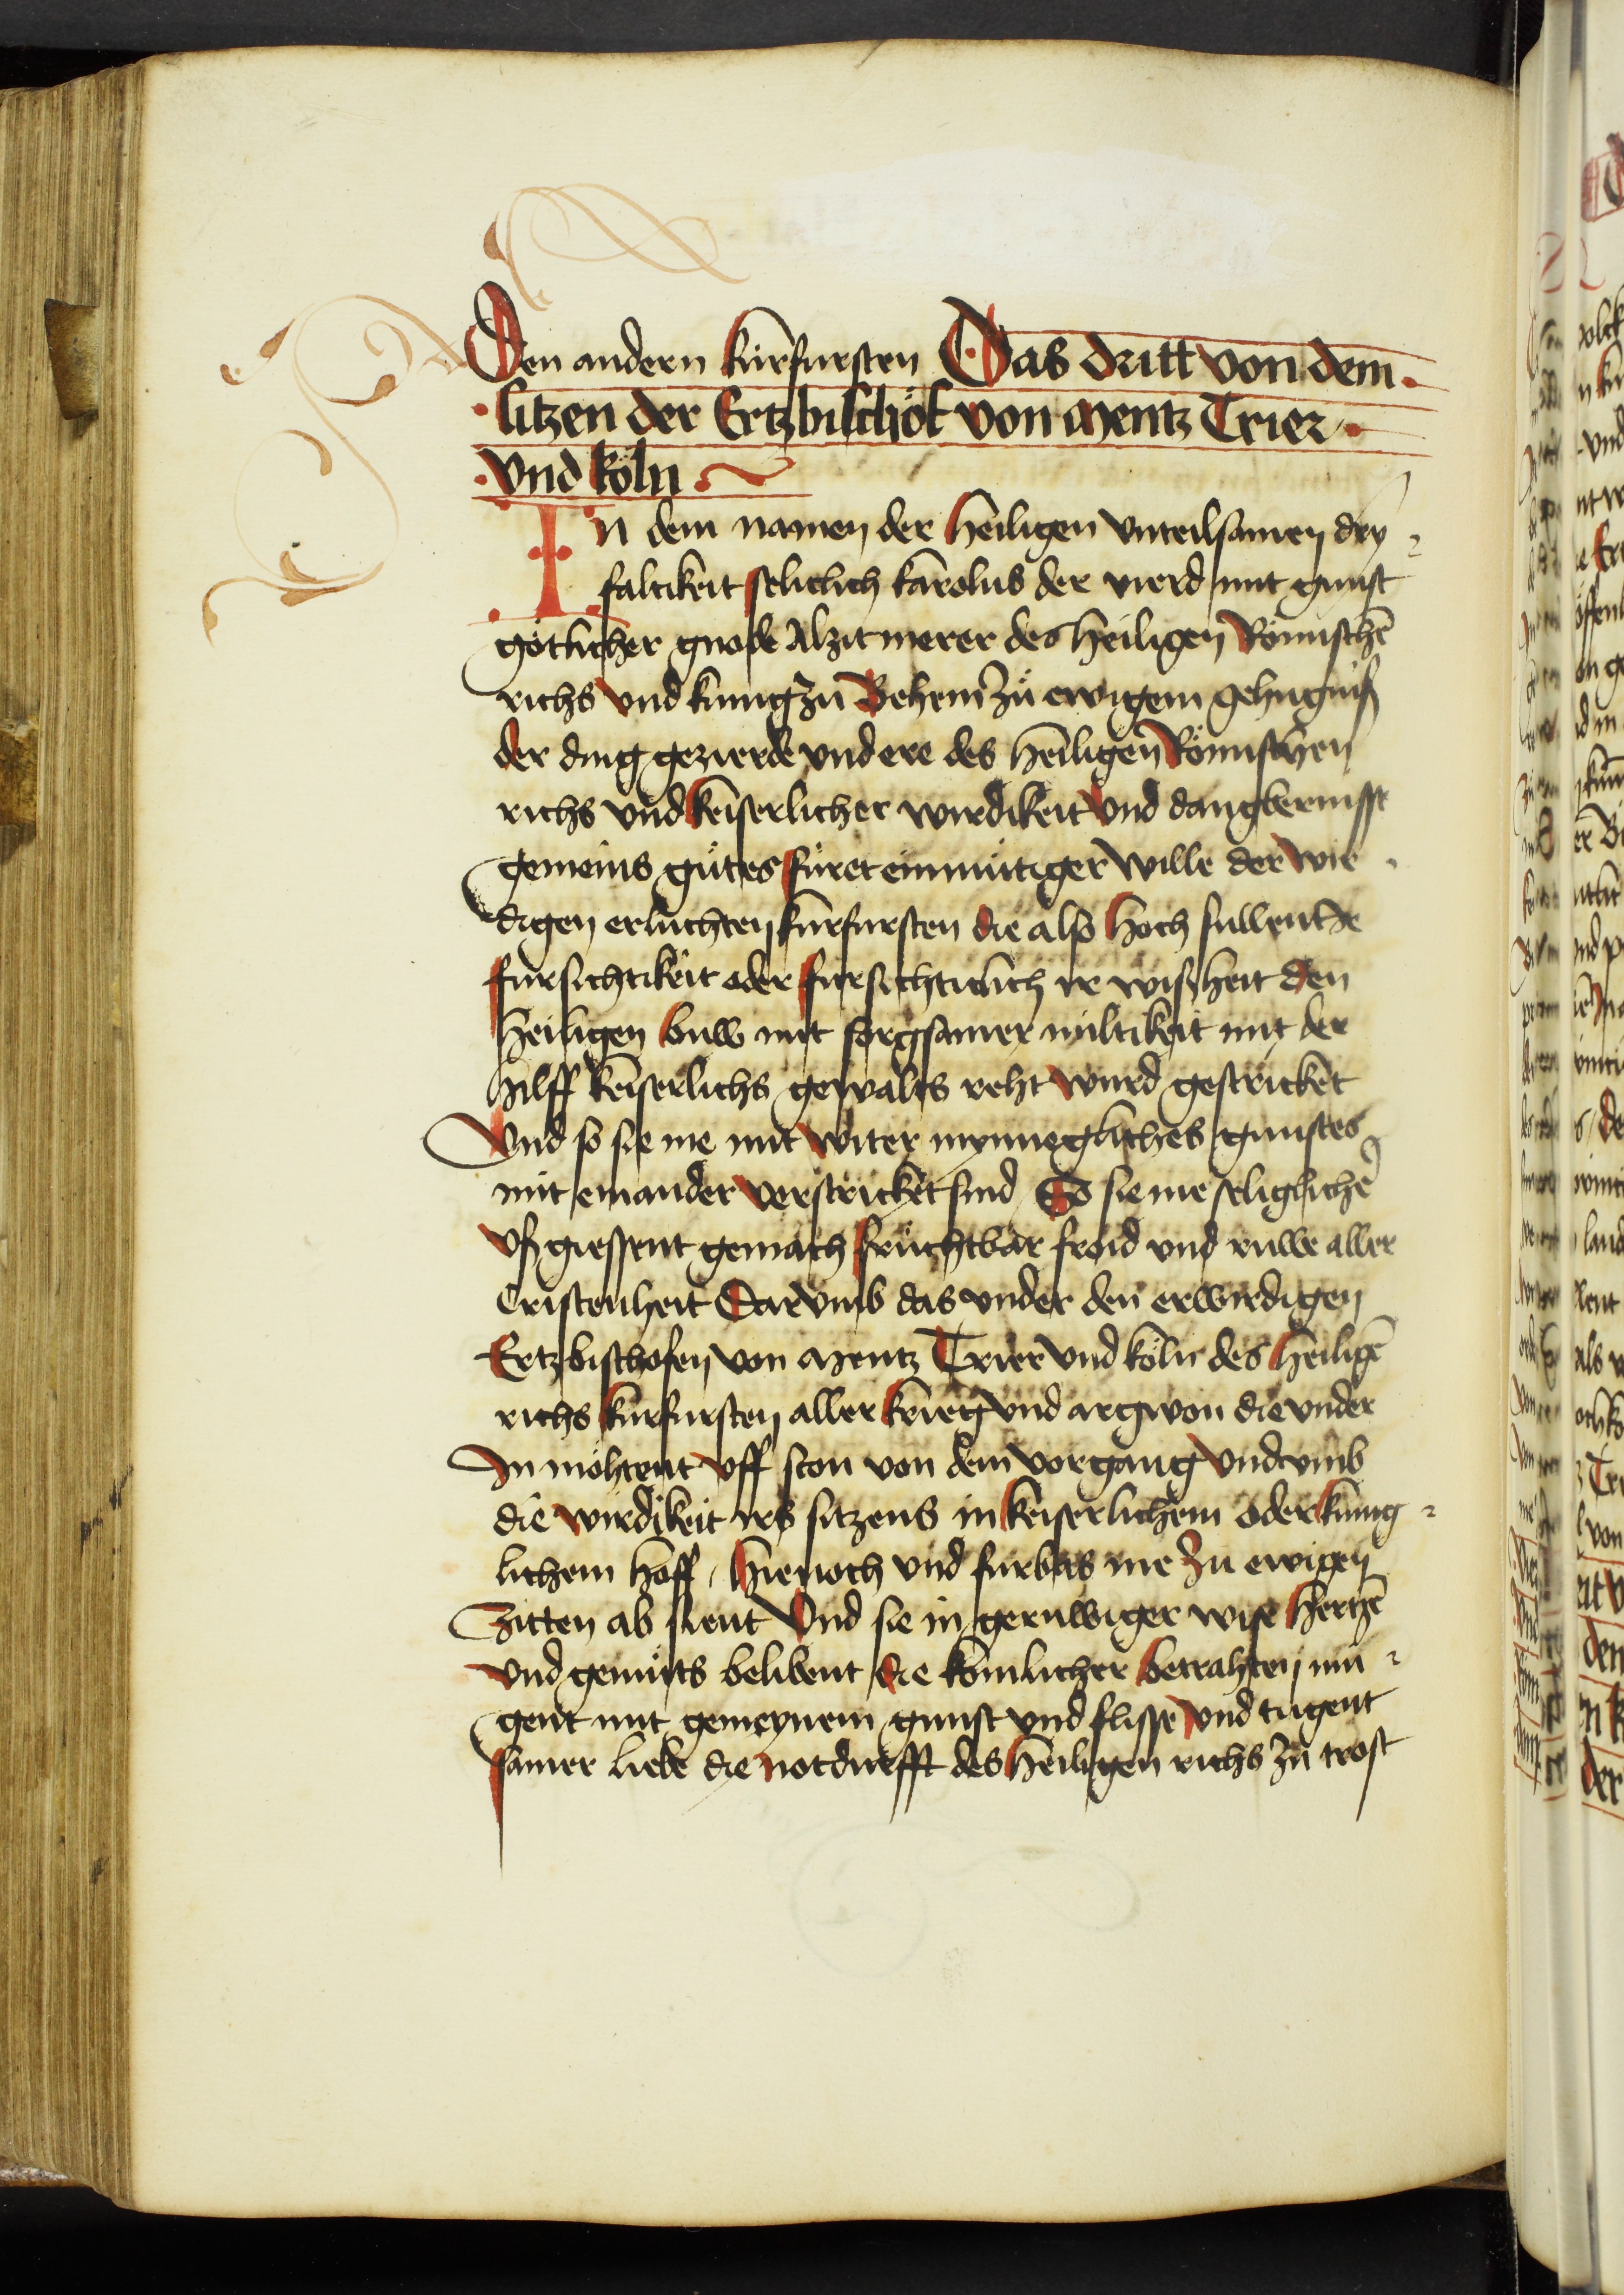 Den andern kurfursten Das dritt von dem
sitzen der Ertzbischöf von Mentz Trier
vnd köln
In dem namen der heiligen vnteilsamen dry
faltikeit seliclich karolus der vierd mit gunst
götlicher gnade Alzit merer des heiligen Römischē
richs vnd kunig zu Behem Zu ewigem gehugniß
der ding gezierde vnd ere des heiligen Römischen
richs vnd keiserlicher wirdikeit vnd dangbernisse
gemeins gütes füret einmütiger wille der wir
digen erluchten kurfursten die also hoch sullent
fursichtikeit oder fursichticlich ir wißheit den
heiligen buw mit sorgsamer miltikeit mit der
hilff keiserlichs gewalts reht wurd gestricket
Vnd so sie me mit witer mynneglichs gunstes
mit einander verstricket sind So sie me seliglichē
vß giessent gemach fruchtbar froid vnd ruwe aller
Cristenheit Darvmb das vnder den erwirdigen
Ertzbischofen von Mentz Trier vnd köln des heiligē
richs kurfursten aller krieg vnd argwon die vnder
In möhtent vff ston von dem vorgang vnd vmb
die wirdikeit irs sitzens in keiserlichem oder kunig
lichem hoff / hienoch vnd furbas me Zu ewigen
Zitten ab sient Vnd sie in geruwiger wise hertzē
vnd gemüts belibent die komlicher betrahten mü
gent mit gemeynem gunst vnd flisse vnd tugent
samer liebe die notdurfft des heiligen richs Zu trost